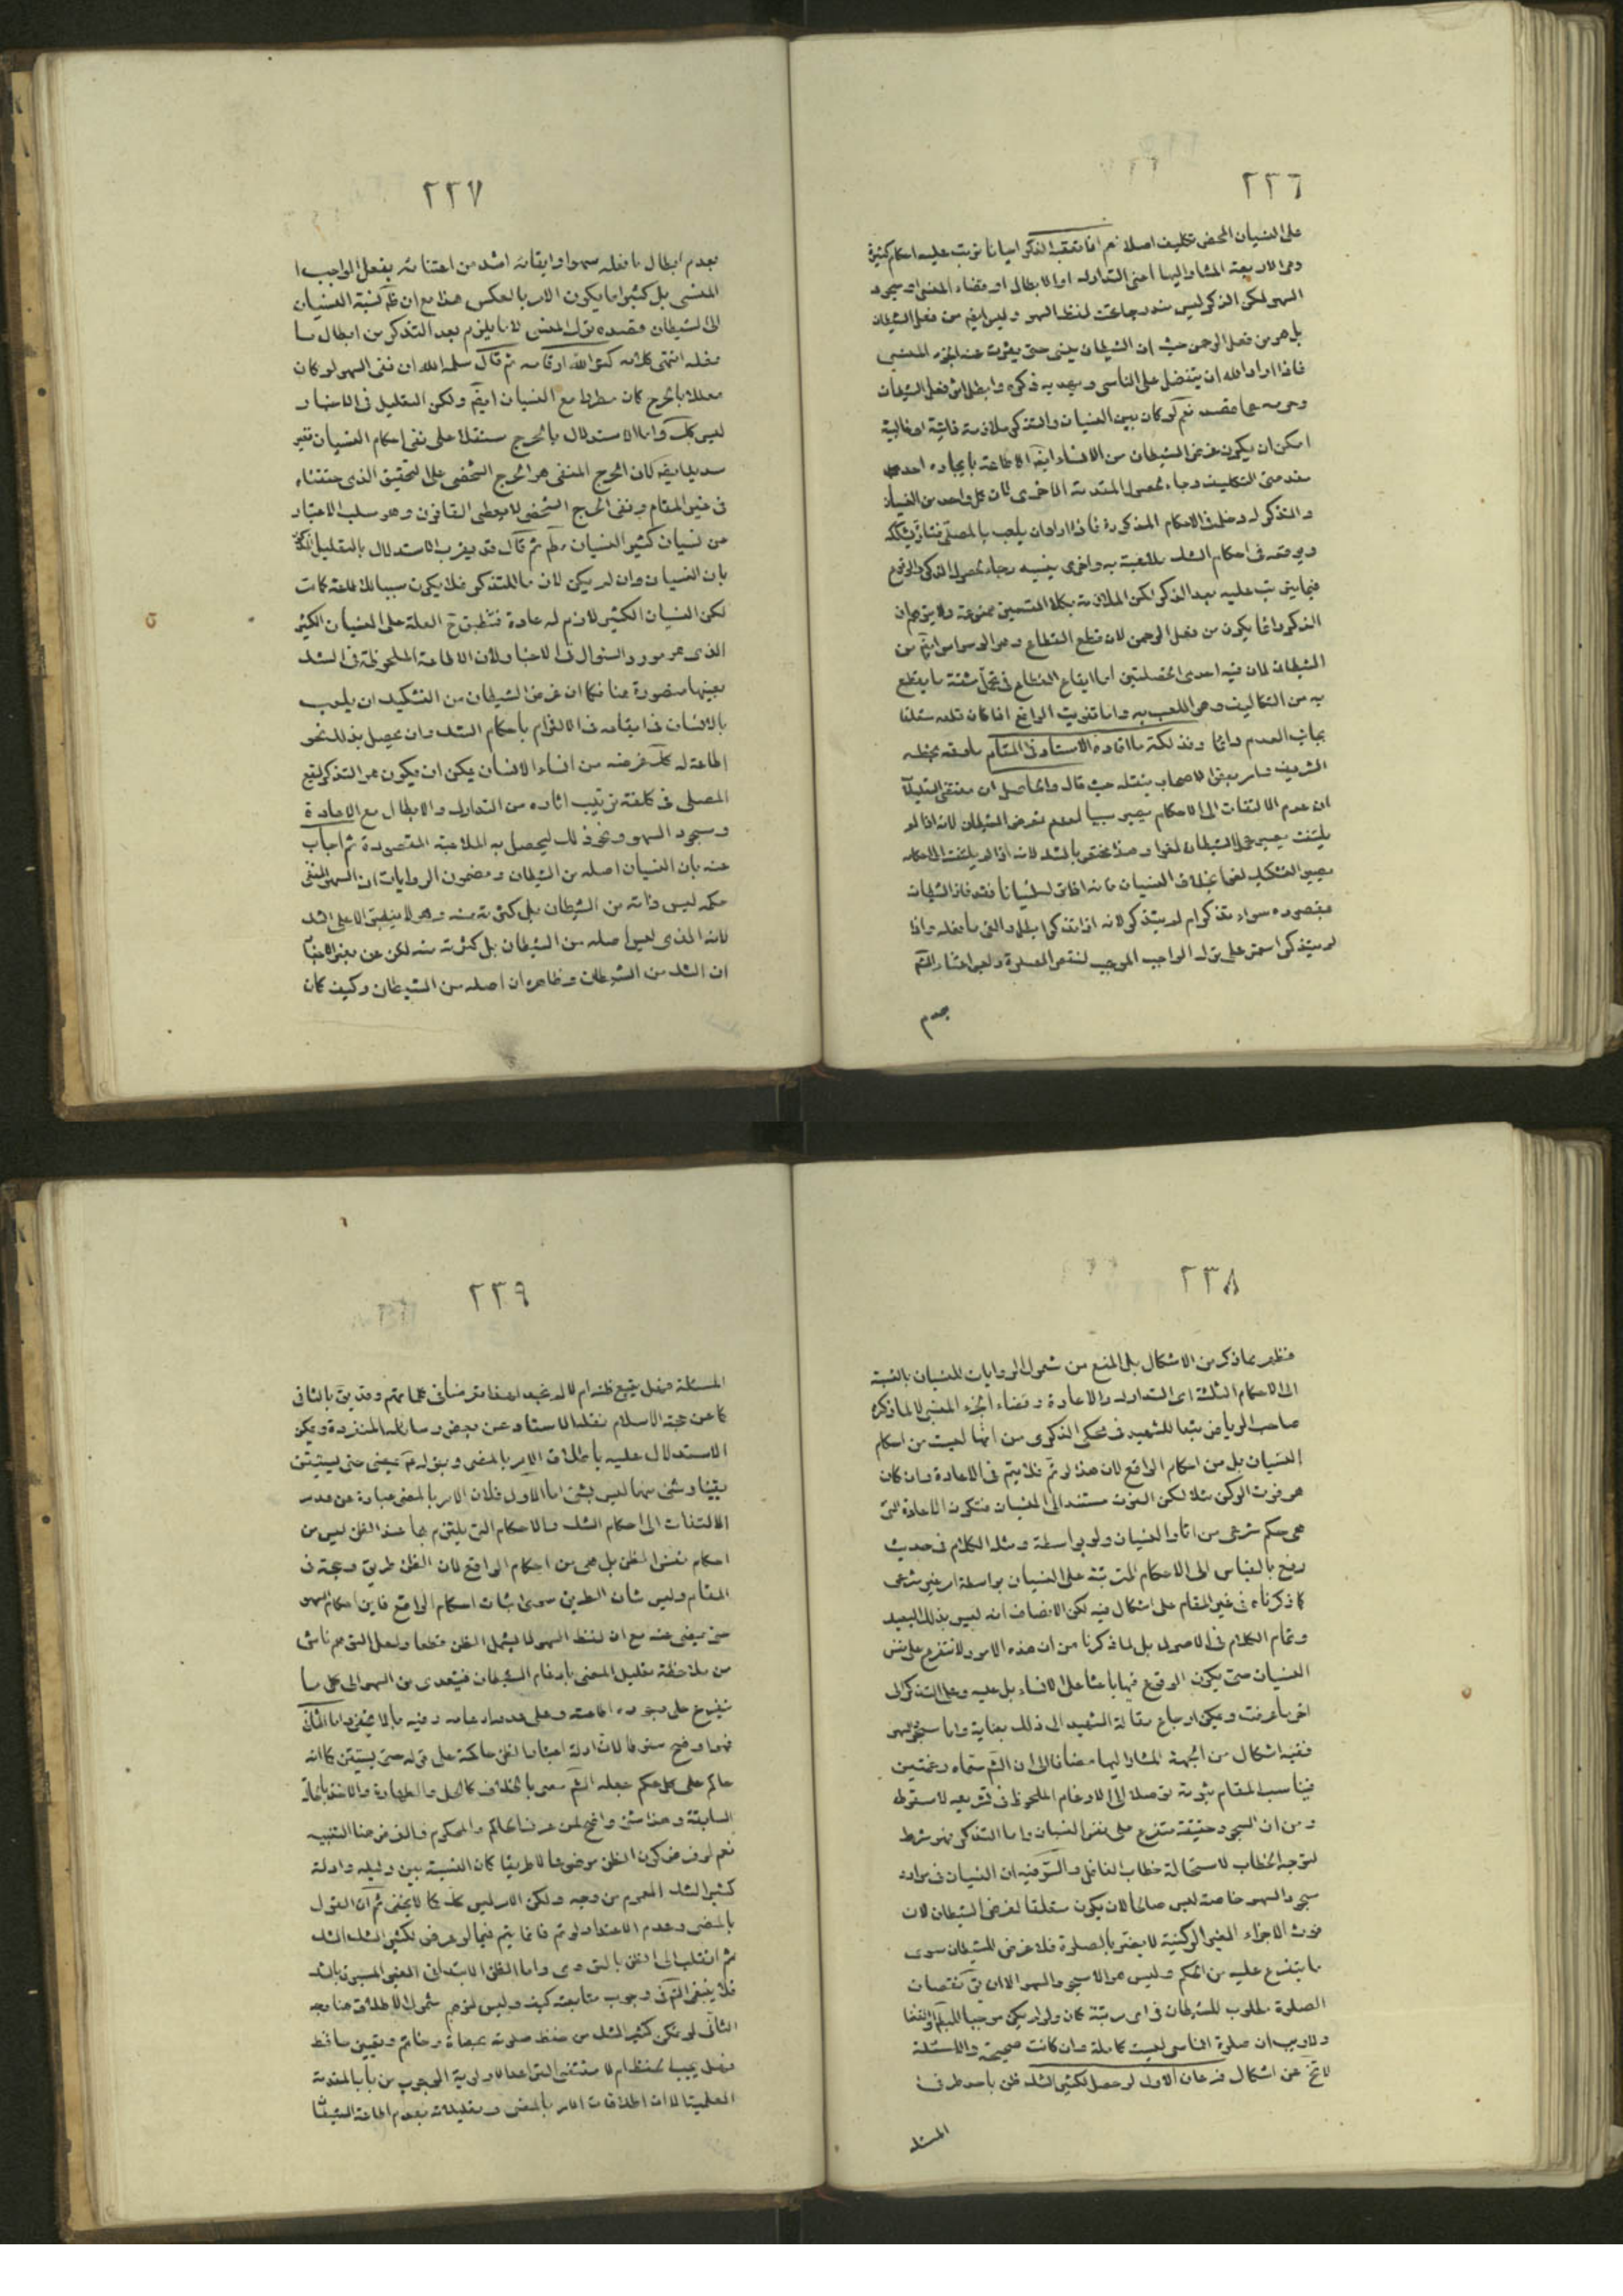 ٢٣٦
على النسيان المحض تكليف اصلا نعم اذا تعقبه الذكر احيانا ترتب عليه احكام كثيرة
وهى الاربعة المشار اليها اعنى التدارك او الابطال او قضاء المنسى او سجود
السهو لكن الذكر ليس مندرجا تحت لفظ السهو وليس ايضا من فعل الشيطان
بل هو من فعل الرحمن حيث ان الشيطان ينسى حتى يفوت عنه الجزء المنسى
فاذا اراد الله ان يتفضل على الناسى ويهديه ذكره وابطل اثر فعل الشيطان
وحرمه عما قصد نعم لو كان بين النسيان والتذكر ملازمة دائمة او غالبية
امكن ان يكون غرض الشيطان من الانساء ايضا الاطاعة بايجاده احدى
مقدمتى التكليف رجاء لحصول المقدمة الاخرى لان كل واحد من النسيان
والتذكر له دخل فى الاحكام المذكورة فاذا اراد ان يلعب بالمصلى فتارة يشككه
ويوقعه فى احكام الشك بالنسبة به واخرى ينسيه رجاء لحصول الذكر والوقوع
فيما يترتب عليه بعد الذكر لكن الملازمة بكلا القسمين ممنوعة ولا يتوهم ان
الذكر دائما يكون من فعل الرحمن لان قطع القطاع وهو الوسواس ايضا من
الشيطان لان فيه احدى الخصلتين اما ايقاع القطاع فى تحمل مشقة ما يقطع
به من التكاليف وهى اللعب به واما تفويت الواقع اذا كان قطعه متعلقا
بجانب العدم دائما وفذلكة ما افاده الاستاد فى المقام ما وقعه بخطه
الشريف وامر بعض الاصحاب بنقله حيث قال والحاصل ان مقتضى التعليل
ان عدم الالتفات الى الاحكام يصير سببا لعدم تعرض الشيطان لانه اذا لم
يلتفت يصير عمل الشيطان لغوا وهذا مختص بالشك لانه اذا لم يلتفت الى احكامه
يصير التشكيك لغوا بخلاف النسيان فانه اذا نسى انسانا فقد فاز الشيطان
بمقصوده سواء تذكر ام لم يتذكر لانه اذا تذكر ابطل والغى ما فعله واذا
لم يتذكر استمر على ترك الواجب الموجب لنقص الصلوة وليس اعتناء الشم
بعدم
٢٣٧
بعدم ابطال ما فعله سهوا وابقائه اشد من اعتنائه بفعل الواجب
المنسى بل كثيرا ما يكون الامر بالعكس هذا مع ان ظ نسبة النسيان
الى الشيطان مقصده ترك المنسى لا ما يلزم بعد التذكر من ابطال ما
فعله انتهى كلامه كثر الله افادته ثم قال سلمه الله ان نفى السهو لو كان
معللا بالحرج كان مطردا مع النسيان ايضا ولكن التعليل فى الاخبار
ليس كك واما الاستدلال بالحرج مستقلا على نفى احكام النسيان فغير
سديد ايضا كان الحرج المنفى هو الحرج الشخصى على التحقيق الذى حققناه
فى غير المقام ونفى الحرج الشخصى لا يعطى القانون وهو سلب الاعتبار
من نسيان كثير النسيان ثم قال قد يقرب الاستدلال بالتعليل
بان النسيان وان لم يكن لازما للتذكر فلا يكون سببا للاطاعة كانت
لكن النسيان الكثير لازم له عادة فتنطبق ح العلة على النسيان الكثير
الذى هو مورد السؤال فى الاخبار لان الاطاعة الملحوظة فى الشك
بعينها متصورة هنا فكما ان غرض الشيطان من التشكيك ان يلعب
بالانسان فى ايقاعه فى الالتزام باحكام الشك وان يحصل بذلك نحو
اطاعة له كك غرضه من انساء الانسان يمكن ان يكون هو التذكر ليقع
المصلى فى كلفة ترتيب اثاره من التدارك والابطال مع الاعادة
وسجود السهو ونحو ذلك ليحصل به الملاعبة المقصودة ثم اجاب
عنه بان النسيان اصله من الشيطان ومضمون الروايات ان السهو المنفى
حكمه ليس ذاته من الشيطان بل كثرته منه وهو لا ينطبق الا على الشك
لانه الذى ليس اصله من الشيطان بل كثرته منه لكن عن بعض الاخبار
ان الشك من الشيطان وظاهره ان اصله من الشيطان وكيف كان
٢٣٨
فظهر مما ذكر من الاشكال بل المنع من شمول الروايات للنسيان بالنسبة
الى الاحكام الثلثة اى التدارك والاعادة وقضاء الجزء المنسى لا لما ذكره
صاحب الرياض تبعا للشهيد فى محكى الذكرى من انها ليست من احكام
النسيان بل من احكام الواقع لان هذا لو تم فلا يتم فى الاعادة وان كان
هو فوت الركن مثلا لكن الفوت مستند الى النسيان فتكون الاعادة التى
هى حكم شرعى من اثار النسيان ولو بواسطة ومثله الكلام فى حديث
رفع بالقياس الى الاحكام المترتبة على النسيان بواسطة امر غير شرعى
كما ذكرناه فى غير المقام على اشكال فيه لكن الانصاف انه ليس بذلك البعيد
وتمام الكلام فى الاصول بل لما ذكرنا من ان هذه الامور لا تتفرع على نفس
النسيان حتى يكون الوقوع فيها باعثا على الانساء بل عليه وعلى التذكر الى
اخر ما عرفت ويمكن ارجاع مقالة الشهيد الى ذلك بعناية واما سجود السهو
ففيه اشكال من الجهة المشار اليها مضافا الى ان الشم سماه رغمتين
فيناسب المقام ثبوته توصلا الى الارغام الملحوظ فى تشريعه لا سقوطه
ومن ان السجود حقيقة متفرع على نفس النسيان واما التذكر فهو شرط
لتوجه الخطاب لاستحالة خطاب الغافل والسر فيه ان النسيان فى موارد
سجود السهو خاصة ليس صالحا لان يكون متعلقا لغرض الشيطان لان
فوت الاجزاء الغير الركنية لا يضر بالصلوة فلا غرض للشيطان سوى
ما يتفرع عليه من الحكم وليس هو الا سجود السهو الا ان يق نقصان
الصلوة مطلوب للشيطان فى اى مرتبة كان ولو لم يكن موجبا
ولا ريب ان صلوة الناسى ليست كاملة وان كانت صحيحة والمسئلة
لا تخ عن اشكال فرعان الاول لو حصل لكثير الشك ظن باحد طرفى
المسئلة
٢٣٩
المسئلة فهل يتبع ظنه ام لا لم نجد له مصرحا فى كلماتهم وقد يق بالثانى
كما عن حجة الاسلام نقله الاستاد عن بعض رسائله المنفردة ويمكن
الاستدلال عليه باطلاق الامر بالمضى وبقوله ع يمضى حتى يستيقن
يقينا وشئ منها ليس بشئ اما الاول فلان الامر بالمضى عبارة عن عدم
الالتفات الى احكام الشك والاحكام التى يلتزم بها عند الظن ليس من
احكام نفس الظن بل هى من احكام الواقع لان الظن طريق وحجة فى
المقام وليس شان الطريق سوى اثبات احكام الواقع فاين احكام السهو
حتى يمضى عنه مع ان لفظ السهو لا يشمل الظن قطعا ولعل التوهم ناش
من ملاحظة تعليل المضى بارغام الشيطان فيتعدى من السهو الى كل ما
يتفرع على وجوده اطاعته وعلى عدمه ارغامه وفيه ما لا يخفى واما الثانى
فهو اوضح سقوطا لان ادلة اعتبار الظن حاكمة على قوله حتى يستيقن كما انه
حاكم على كل حكم جعله الشم مغيى بالخلاف كالحل والطهارة والاخذ بالحالة
السابقة وهذا شئ واضح لمن عرف الحاكم والمحكوم والغرض هنا التنبيه
نعم لو فرض كون الظن موضوعا لا طريقا كان النسبة بين دليله وادلة
كثير الشك العموم من وجه ولكن الامر ليس كك كما لا يخفى ثم ان القول
بالمضى وعدم الاعتداد لو تم فانما يتم فيما لو عرض لكثير الشك الشك
ثم انقلب الى الظن بالتروى واما الظن الابتدائى الغير المسبوق بالشك
فلا ينبغى الشك فى وجوب متابعته كيف وليس لتوهم شمول الاطلاق هنا وجه
الثانى لو تمكن كثير الشك من حفظ صلوته بحصاة وخاتم وتعيين حافظ
فهل يجب الحفظ ام لا مقتضى القواعد الاولوية الوجوب من باب المقدمة
العلمية الا ان اطلاقات الامر بالمضى وتعليلاته بعدم اطاعة الشيطان